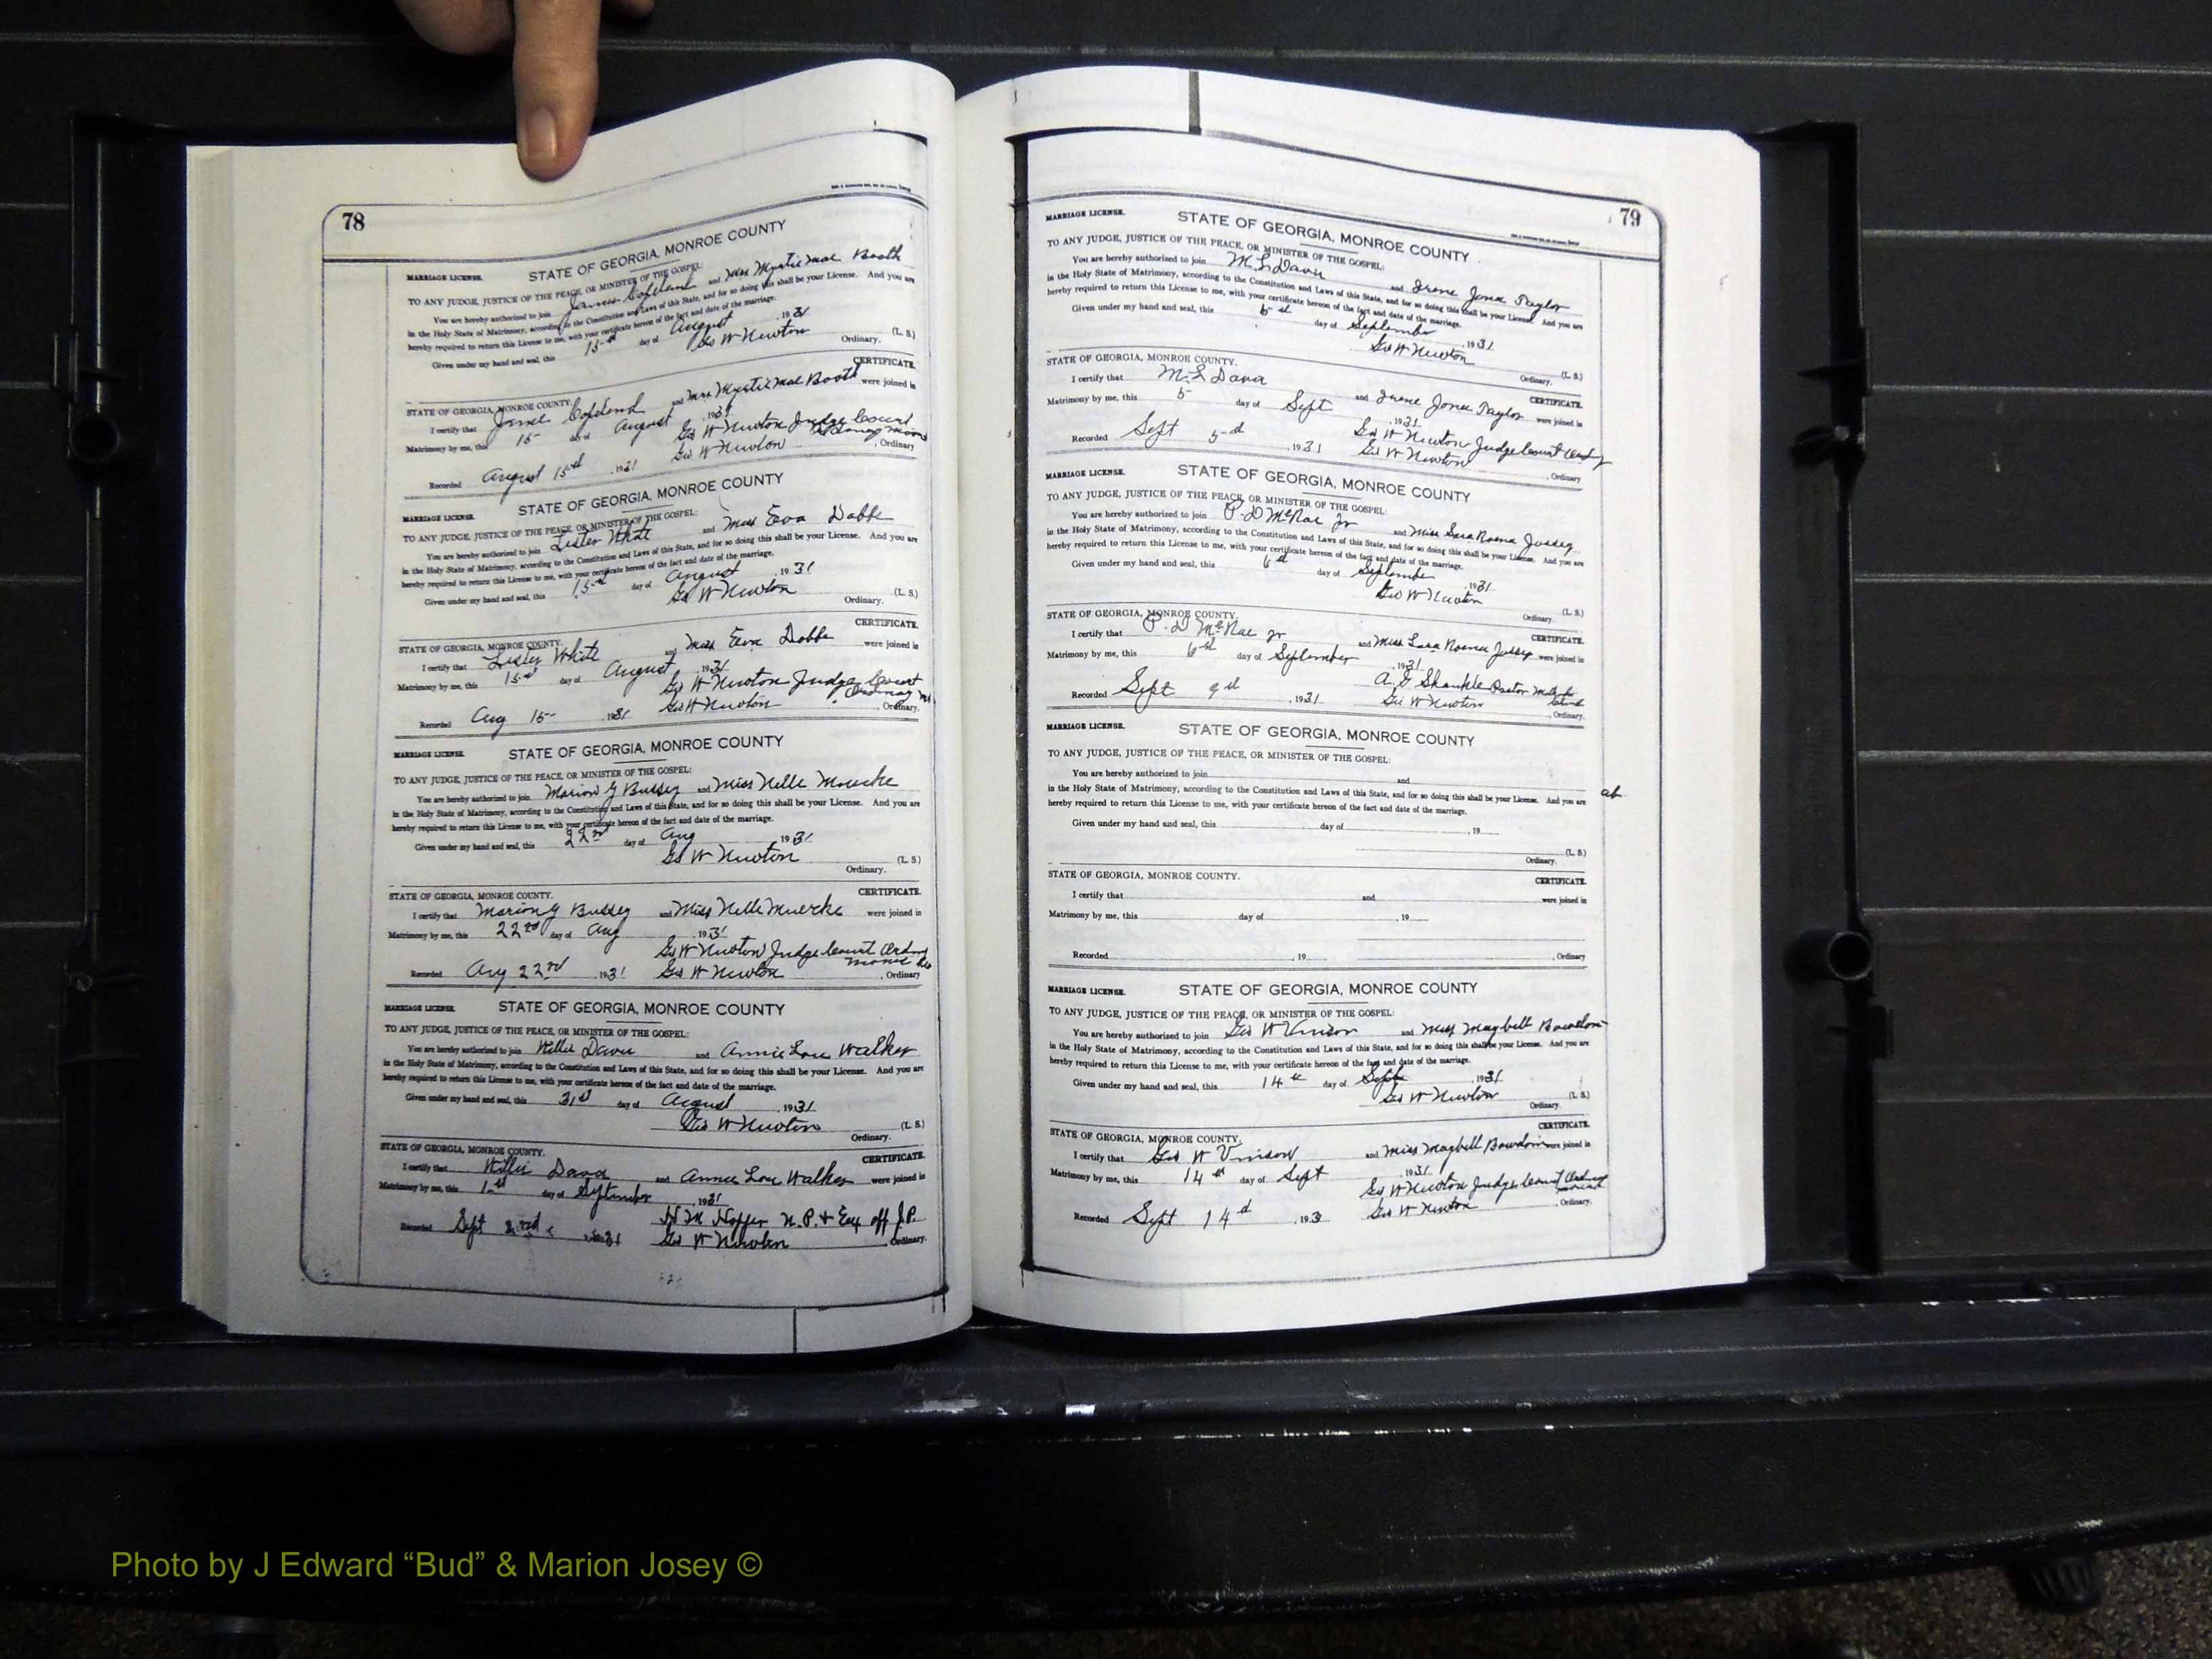 78
MARRIAGE LICENSE. STATE OF GEORGIA, MONROE COUNTY
TO ANY JUDGE, JUSTICE OF THE PEACE, OR MINISTER OF THE GOSPEL:
You are hereby authorized to join James Copeland and Miss Myrtie Mae Booth
in the Holy State of Matrimony, according to the Constitution and Laws of this State, and for so doing this shall be your License. And you are
hereby required to return this License to me, with your certificate hereon of the fact and date of the marriage.
Given under my hand and seal, this 15th day of August, 1931
Geo W Newton (L. S.)
Ordinary.
CERTIFICATE.
STATE OF GEORGIA, MONROE COUNTY.
I certify that James Copeland and Miss Myrtie Mae Booth were joined in
Matrimony by me, this 15 day of August, 1931
Geo W Newton Judge Court Ordinary
Recorded August 15th, 1931 Geo W Newton, Ordinary
MARRIAGE LICENSE. STATE OF GEORGIA, MONROE COUNTY
TO ANY JUDGE, JUSTICE OF THE PEACE, OR MINISTER OF THE GOSPEL:
You are hereby authorized to join Lester White and Miss Eva Dobbs
in the Holy State of Matrimony, according to the Constitution and Laws of this State, and for so doing this shall be your License. And you are
hereby required to return this License to me, with your certificate hereon of the fact and date of the marriage.
Given under my hand and seal, this 15th day of August, 1931
Geo W Newton (L. S.)
Ordinary.
CERTIFICATE.
STATE OF GEORGIA, MONROE COUNTY.
I certify that Lester White and Miss Eva Dobbs were joined in
Matrimony by me, this 15th day of August, 1931
Geo W Newton Judge Court Ordinary
Recorded Aug 15, 1931 Geo W Newton, Ordinary.
MARRIAGE LICENSE. STATE OF GEORGIA, MONROE COUNTY
TO ANY JUDGE, JUSTICE OF THE PEACE, OR MINISTER OF THE GOSPEL:
You are hereby authorized to join Marion G Bussey and Miss Nelle Muecke
in the Holy State of Matrimony, according to the Constitution and Laws of this State, and for so doing this shall be your License. And you are
hereby required to return this License to me, with your certificate hereon of the fact and date of the marriage.
Given under my hand and seal, this 22nd day of Aug, 1931
Geo W Newton (L. S)
Ordinary.
CERTIFICATE.
STATE OF GEORGIA, MONROE COUNTY.
I certify that Marion G Bussey and Miss Nelle Muercke were joined in
Matrimony by me, this 22nd day of Aug, 1931
Geo W Newton Judge Court Ordinary
Recorded Aug 22nd, 1931 Geo W Newton, Ordinary
MARRIAGE LICENSE. STATE OF GEORGIA, MONROE COUNTY
TO ANY JUDGE, JUSTICE OF THE PEACE, OR MINISTER OF THE GOSPEL:
You are hereby authorized to join Willie Davis and Annie Lou Walker
in the Holy State of Matrimony, according to the Constitution and Laws of this State, and for so doing this shall be your License. And you are
hereby required to return this License to me, with your certificate hereon of the fact and date of the marriage.
Given under my hand and seal, this 31st day of August, 1931
Geo W Newton (L. S.)
Ordinary.
STATE OF GEORGIA, MONROE COUNTY.
CERTIFICATE.
I certify that Willie Davis and Annie Lou Walker were joined in
Matrimony by me, this 1st day of September, 1931
N.P. & Exy off J.P.
Recorded Sept 2nd, 1931 Geo W Newton, Ordinary.
79
MARRIAGE LICENSE. STATE OF GEORGIA, MONROE COUNTY
TO ANY JUDGE, JUSTICE OF THE PEACE, OR MINISTER OF THE GOSPEL:
You are hereby authorized to join M. L. Davis and Irene Jones Taylor
in the Holy State of Matrimony, according to the Constitution and Laws of this State, and for so doing this shall be your License. And you are
hereby required to return this License to me, with your certificate hereon of the fact and date of the marriage.
Given under my hand and seal, this 5th day of September, 1931
Geo W Newton (L. S.)
Ordinary.
STATE OF GEORGIA, MONROE COUNTY.
CERTIFICATE.
I certify that M. L Davis and Irene Jones Taylor were joined in
Matrimony by me, this 5 day of Sept, 1931
Geo W Newton Judge Court Ordinary
Recorded Sept 5th, 1931 Geo W Newton, Ordinary
MARRIAGE LICENSE. STATE OF GEORGIA, MONROE COUNTY
TO ANY JUDGE, JUSTICE OF THE PEACE, OR MINISTER OF THE GOSPEL:
You are hereby authorized to join P. D McRae Jr and Miss Sara Jossey
in the Holy State of Matrimony, according to the Constitution and Laws of this State, and for so doing this shall be your License. And you are
hereby required to return this License to me, with your certificate hereon of the fact and date of the marriage.
Given under my hand and seal, this 6th day of September, 1931
Geo W Newton (L. S.)
Ordinary.
STATE OF GEORGIA, MONROE COUNTY.
CERTIFICATE.
I certify that P. D McRae Jr and Miss Sara Jossey were joined in
Matrimony by me, this 6th day of September, 1931
A. G Shankle Pastor
Recorded Sept 9th, 1931 Geo W Newton, Ordinary.
MARRIAGE LICENSE. STATE OF GEORGIA, MONROE COUNTY
TO ANY JUDGE, JUSTICE OF THE PEACE, OR MINISTER OF THE GOSPEL:
You are hereby authorized to join and
in the Holy State of Matrimony, according to the Constitution and Laws of this State, and for so doing this shall be your License. And you are
hereby required to return this License to me, with your certificate hereon of the fact and date of the marriage.
Given under my hand and seal, this day of, 19
(L. S.)
Ordinary.
STATE OF GEORGIA, MONROE COUNTY.
CERTIFICATE.
I certify that and were joined in
Matrimony by me, this day of, 19
Recorded, 19, Ordinary
MARRIAGE LICENSE. STATE OF GEORGIA, MONROE COUNTY
TO ANY JUDGE, JUSTICE OF THE PEACE, OR MINISTER OF THE GOSPEL:
You are hereby authorized to join Geo W Vinson and Miss Maybell Bowdoin
in the Holy State of Matrimony, according to the Constitution and Laws of this State, and for so doing this shall be your License. And you are
hereby required to return this License to me, with your certificate hereon of the fact and date of the marriage.
Given under my hand and seal, this 14th day of Sept, 1931
Geo W Newton (L. S.)
Ordinary.
CERTIFICATE.
STATE OF GEORGIA, MONROE COUNTY.
I certify that Geo W Vinson and Miss Maybell Bowdoin were joined in
Matrimony by me, this 14th day of Sept, 1931
Geo W Newton Judge Court Ordinary
Recorded Sept 14th, 193 Geo W Newton, Ordinary.
Photo by J Edward “Bud” & Marion Josey ©